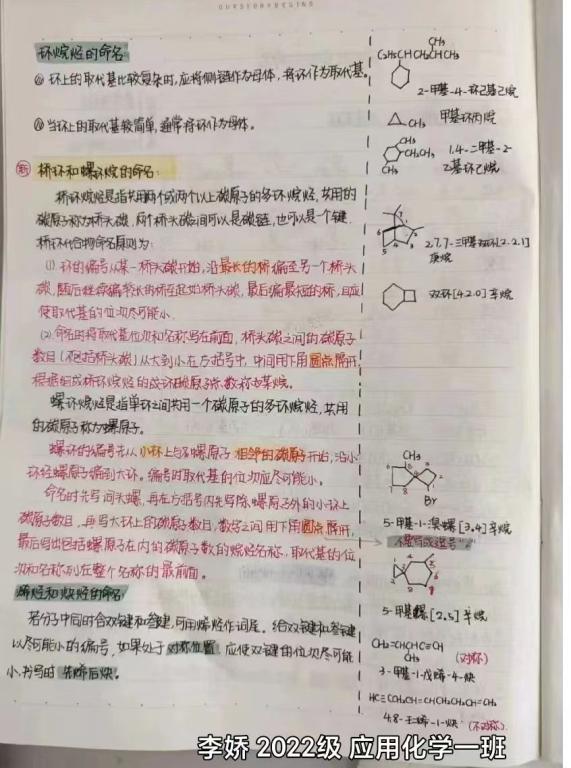 环烷烃的命名
① 环上的取代基比较复杂时,应将侧链作为母体,将环作为取代基。
② 当环上的取代基较简单,通常将环作为母体。
桥环和螺环烷的命名:
桥环烷烃是指共用两个或两个以上碳原子的多环烷烃,共用的
碳原子称为桥头碳,两个桥头碳间可以是碳链,也可以是一个键.
桥环化合物命名原则为:
(1) 环的编号从某一桥头碳开始,沿最长的桥编至另一个桥头
使取代基的位次尽可能小.
(2) 命名时将取代基位次和名称写在前面,桥头碳之间的碳原子
数目(不包括桥头碳)从大到小在方括号中,中间用下角圆点隔开,
螺环烷烃是指单环之间共用一个碳原子的多环烷烃,共用
的碳原子称为螺原子.
环经螺原子编到大环。编号时取代基的位次应尽可能小。
碳原子数目,再写大环上的碳原子数目,数字之间用下角圆点隔开,
最后写出包括螺原子在内的碳原子数的烷烃名称,取代基的位
次和名称列在整个名称的最前面。
烯烃和炔烃的命名
若分子中同时含双键和叁键,可用烯炔作词尾。给双键和叁键
以尽可能小的编号,如果处于对称位置,应使双键的位次尽可能
小,书写时先烯后炔。
CH₃
C₂H₅CHCH₂CHCH₃
2-甲基-4-环己基己烷
CH₃
甲基环丙烷
CH₃
CH₂CH₃
CH₃
1,4-二甲基-2-
乙基环己烷
2,7,7-三甲基双环[2.2.1]
庚烷
双环[4.2.0]辛烷
CH₃
Br
5-甲基-1-溴螺[3,4]辛烷
不能写成逗号","
5-甲基螺[2,5]辛烷
CH₂=CHCHC≡CH
CH₃
(对称)
3-甲基-1-戊烯-4-炔
HC≡CCH₂CH=CHCH₂CH₂CH=CH₂
4,8-壬二烯-1-炔 (不对称)
李娇 2022级 应用化学一班